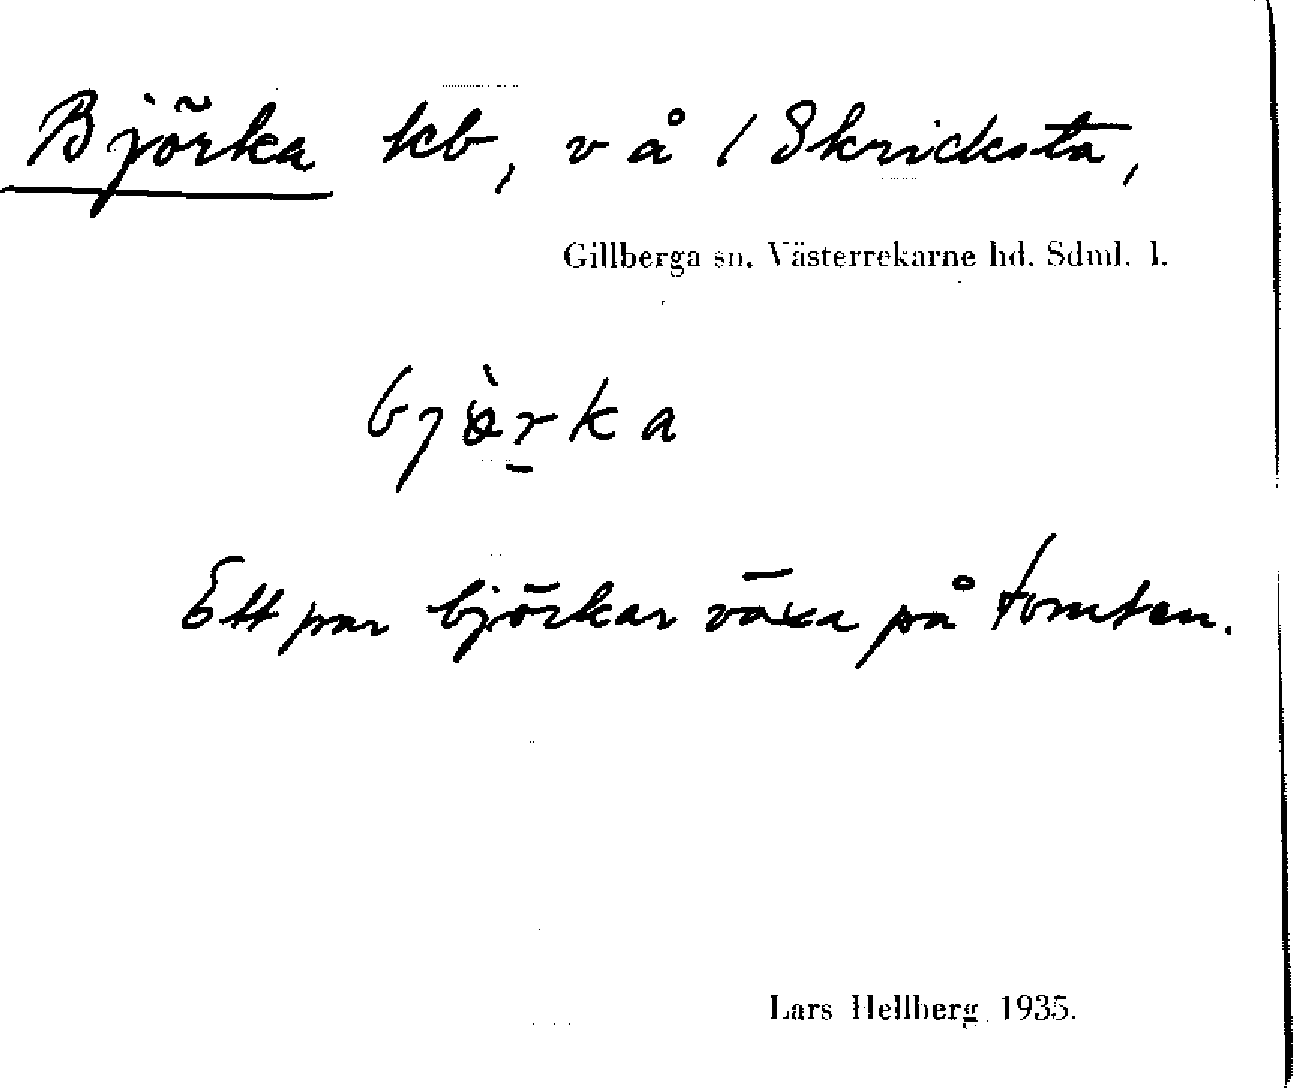 Björka kb, v å / Skricksta,
Gillberga sn. Västerrekarne hd. Sdml. l.
bjö̀r̲ka
Ett par björkar växa på tomten.
Lars Hellberg 1935.